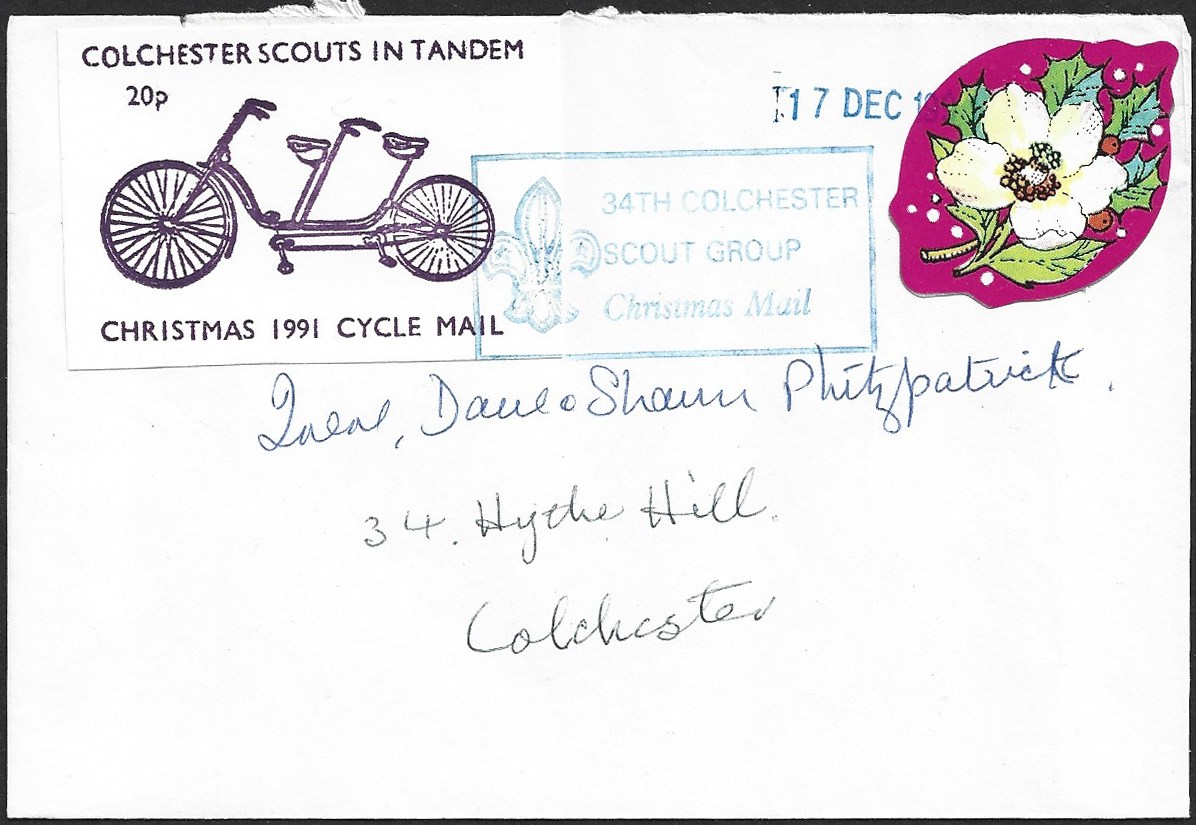 COLCHESTER SCOUTS IN TANDEM
20p
CHRISTMAS 1991 CYCLE MAIL
17 DEC
34TH COLCHESTER
SCOUT GROUP
Christmas Mail
Dave & Shaun Phitzpatrick.
34. Hythe Hill.
Colchester